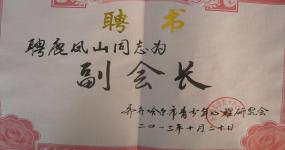 聘书
聘鹿凤山同志为
副会长
齐齐哈尔市青少年心理研究会
二〇一三年十月二十日